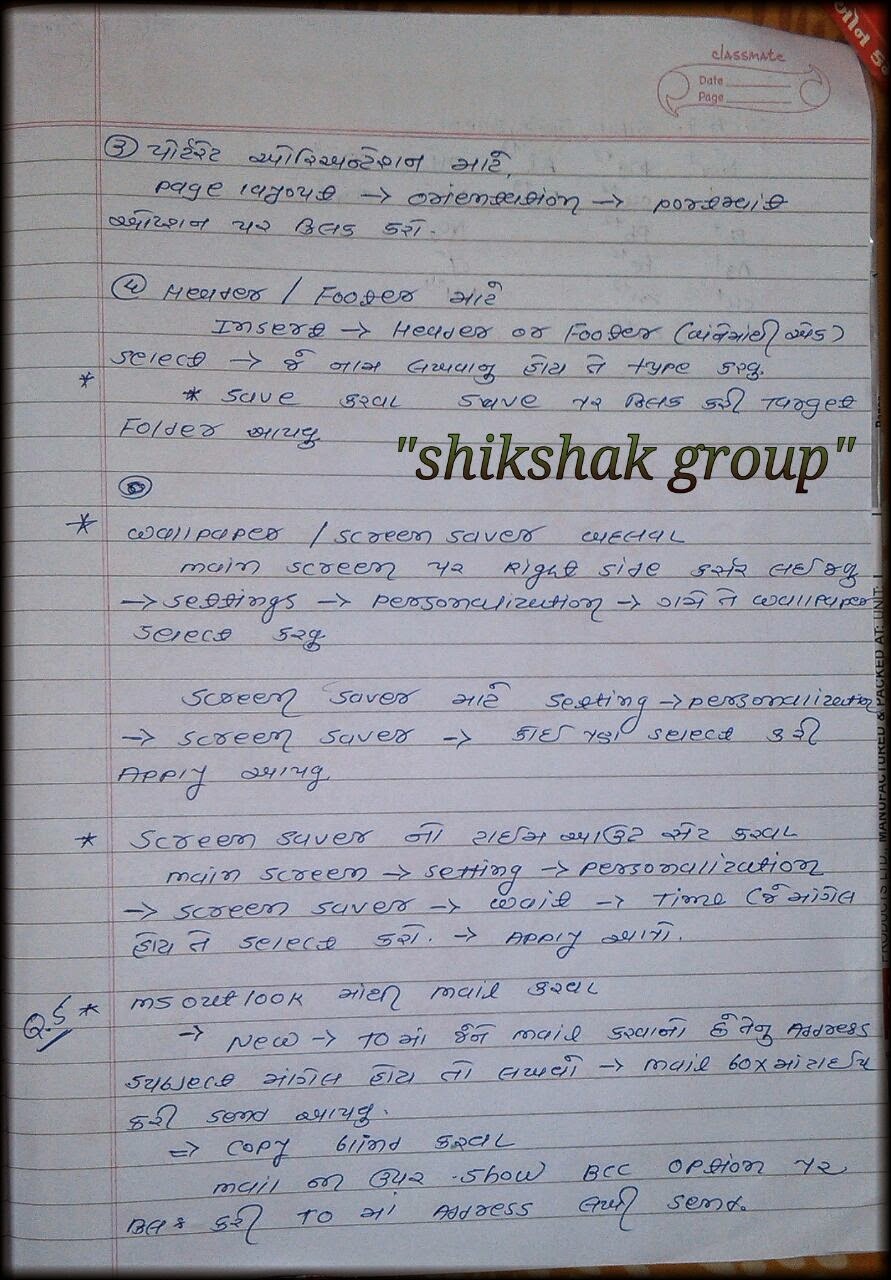 classmate
Date
Page
③ પોર્ટ્રેટ ઓરિએન્ટેશન માટે,
page layout → orientation → portrait
ઓપ્શન પર ક્લિક કરો.
④ Header / Footer માટે
Insert → Header or Footer (બંનેમાંથી એક)
select → જે નામ લખવાનુ હોય તે type કરવુ.
*
* save કરવા save પર ક્લિક કરી Target
Folder આપવુ
"shikshak group"
* wallpaper / screen saver બદલવા
main screen પર Right side કર્સર લઈ જવુ
→ settings → personalization → ગમે તે wallpaper
select કરવુ
screen saver માટે setting → personalization
→ screen saver → કોઈ પણ select કરી
Apply આપવુ.
* Screen saver નો ટાઈમ આઉટ સેટ કરવા
main screen → setting → personalization
→ screen saver → wait → Time (જે માંગેલ
હોય તે select કરો. → Apply આપો.
Q.5 * ms outlook માંથી mail કરવા
→ New → To માં જેને mail કરવાનો છે તેનુ Address
subject માંગેલ હોય તો લખવો → mail box માં ટાઈપ
કરી send આપવુ.
⇒ copy blind કરવા
mail ની ઉપર show Bcc option પર
ક્લિક કરી To માં Address લખી send.
MANUFACTURED & PACKED AT: UNIT: I